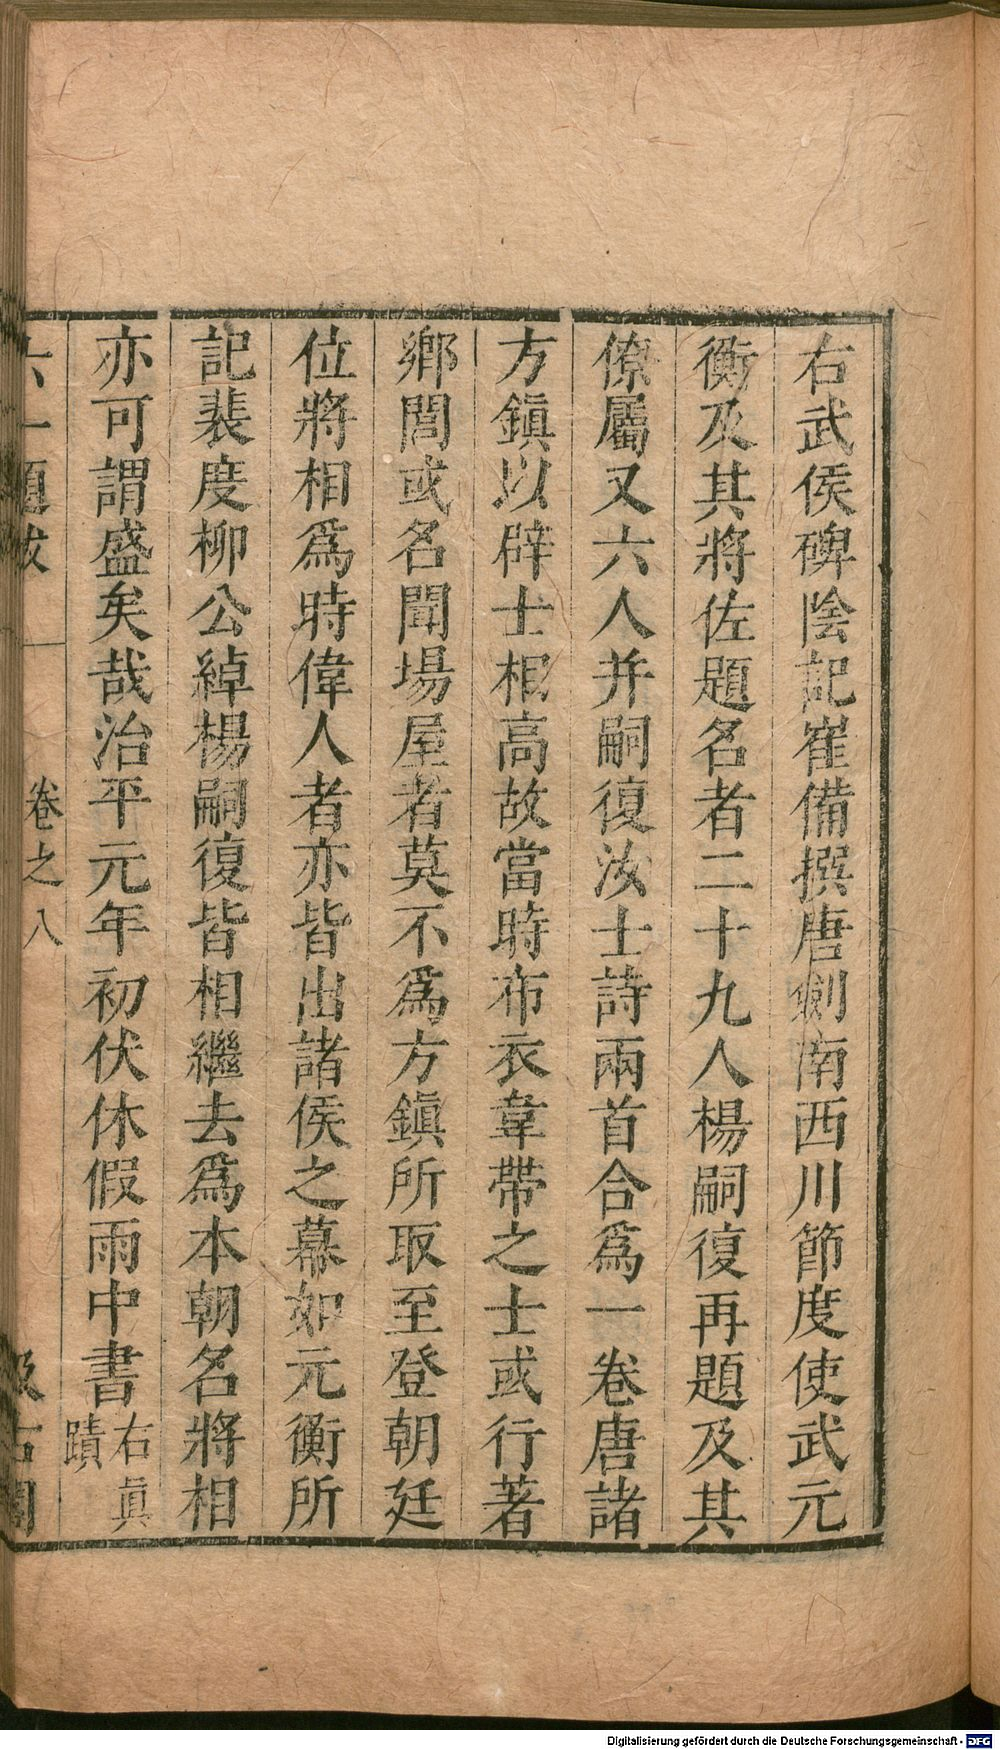 右武侯碑陰記崔備撰唐劍南西川節度使武元
衡及其將佐題名者二十九人楊嗣復再題及其
僚屬又六人并嗣復汝士詩兩首合爲一卷唐諸
方鎮以辟士相高故當時布衣韋帶之士或行著
鄉閭或名聞場屋者莫不爲方鎮所取至登朝廷
位將相爲時偉人者亦皆出諸侯之幕如元衡所
記裴度柳公綽楊嗣復皆相繼去爲本朝名將相
亦可謂盛矣哉治平元年初伏休假雨中書右眞
蹟
六一題跋 卷之八 汲古閣
Digitalisierung gefördert durch die Deutsche Forschungsgemeinschaft - DFG